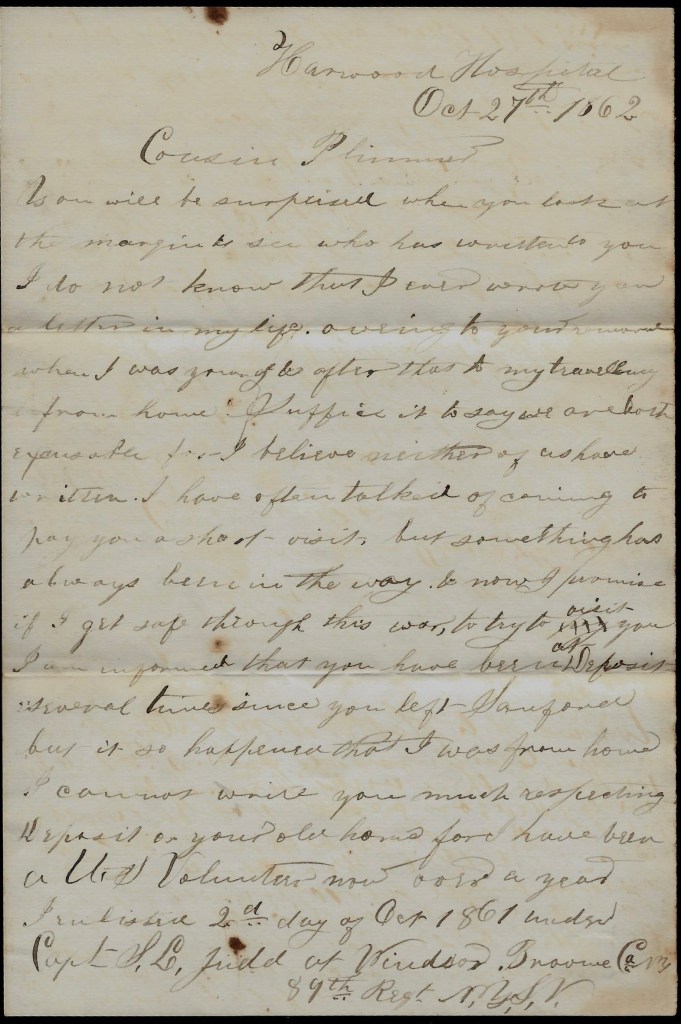 Harwood Hospital
Oct 27th 1862
Cousin Plimmer
You will be surprised when you look at
the margin to see who has written to you
I do not know that I ever wrote you
a letter in my life. oweing to your removal
when I was young & after that to my travelling
from home. Suffice it to say we are both
excusable for I believe neither of us have
written. I have often talked of coming to
pay you a short visit, but something has
always been in the way. & now I promise
if I get safe through this war, to try to visit you
I am informed that you have been at Deposit
several times since you left Sanford
but it so happened that I was from home
I cannot write you much respecting
Deposit or your old home for I have been
a U.S Volunteer now over a year
I enlisted 2d day of Oct 1861 under
Capt S. L. Judd at Windsor Broome Co NY
89th Regt N.Y.S.V.